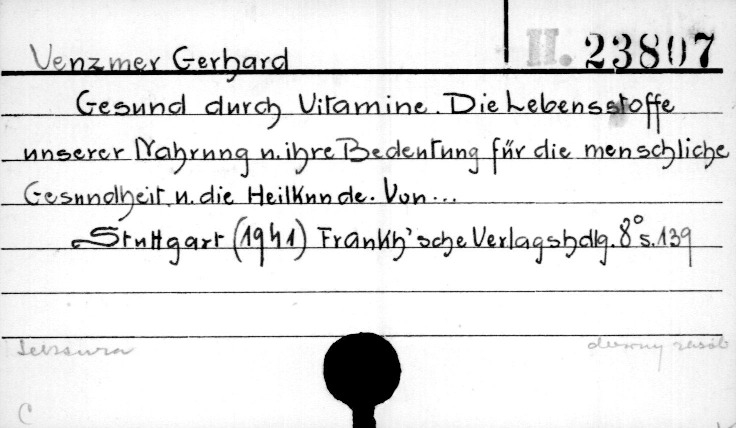 II. 23807
Venzmer Gerhard
Gesund durch Vitamine. Die Lebensstoffe
unserer Nahrung u. ihre Bedeutung für die menschliche
Gesundheit u. die Heilkunde. Von...
Stuttgart (1941) Frankh'sche Verlagshdlg. 8° s. 139
dawny zasób
C